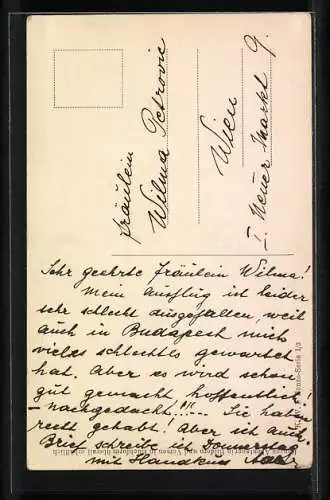 Fräulein
Wilma Petrovic
Wien
I. Neuer Markt 9.
Sehr geehrte Fräulein Wilma!
Mein Ausflug ist leider
sehr schlecht ausgefallen, weil
auch in Budapest mich
vieles schlechtes gewartet
hat. Aber es wird schon
gut gemacht hoffentlich!
- nachgedacht!!!... Sie haben
recht gehabt! Aber ich auch.
Brief schreibe ich Donnerstag
mit
in Bildern und Versen in